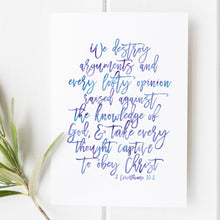 We destroy
arguments and
every lofty opinion
raised against
the knowledge of
God, & take every
thought captive
to obey Christ
2 Corinthians 10:5